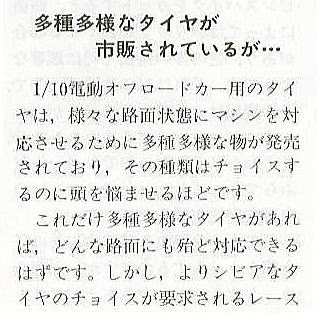 多種多様なタイヤが
市販されているが…
1/10電動オフロードカー用のタイ
ヤは，様々な路面状態にマシンを対
応させるために多種多様な物が発売
されており，その種類はチョイスす
るのに頭を悩ませるほどです。
これだけ多種多様なタイヤがあれ
ば，どんな路面にも殆ど対応できる
はずです。しかし，よりシビアなタ
イヤのチョイスが要求されるレース